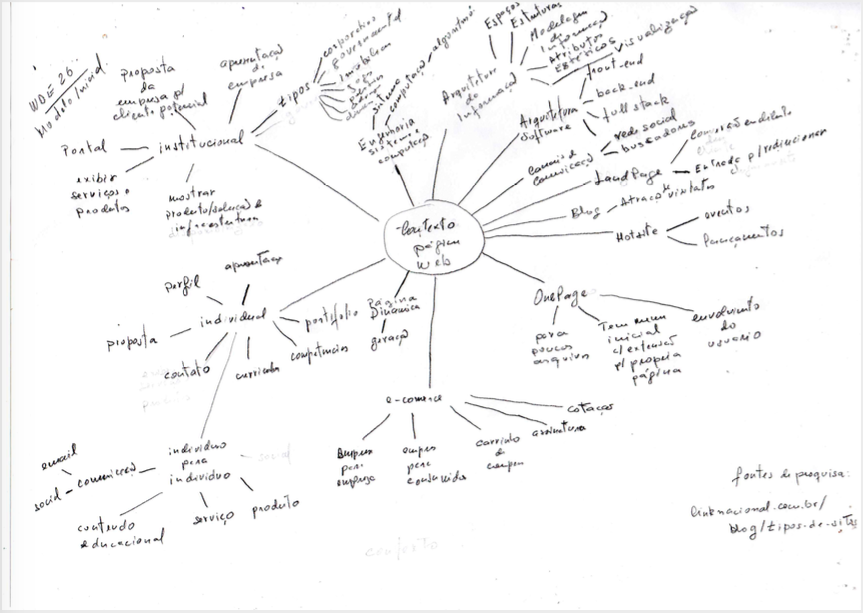 WDE 26
Modelo/inicial
proposta
da
empresa p/
cliente potencial
apresentação
da
empresa
Portal
institucional
exibir
serviços e
produtos
mostrar
produto/solução e
infraestrutura
tipos
corporativo
governamental
Imobiliária
Engenharia
sistema e
computação
sistema
computação
algoritmo
Arquitetura
da
Informação
Espaços
Estruturas
Modelagem
da
Informação
Atributos
Estéticos
visualização
Arquitetura
Software
front-end
back-end
full stack
Canais de
comunicação
rede social
buscadores
LandPage
Entrada p/redirecionar
Blog
Atração visitantes
Hotsite
eventos
lançamentos
Contexto
página
Web
OnePage
para
poucos
arquivos
Tem menu
inicial
c/extensão
p/ propria
página
envolvimento
do
usuario
apresentação
perfil
proposta
individual
contato
curriculo
competencias
portifolio
Página
Dinâmica
geração
e-comerce
Empresa
para
empresa
empresa
para
consumidor
carrinho
de
compra
assinatura
cotação
individuo
para
individuo
social
email
social
comunicação
conteudo
educacional
serviço
produto
contexto
fontes de pesquisa:
linknacional.com.br/
blog/tipos-de-sites